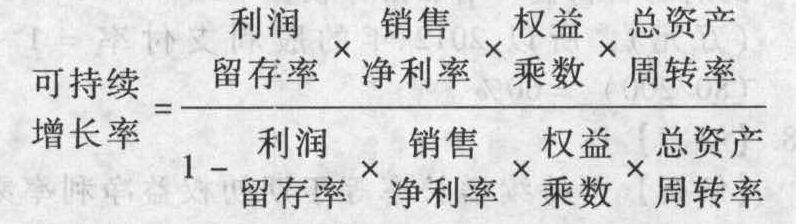 可持续增长率 = 
利润留存率 × 销售净利率 × 权益乘数 × 总资产周转率
1 - 利润留存率 × 销售净利率 × 权益乘数 × 总资产周转率